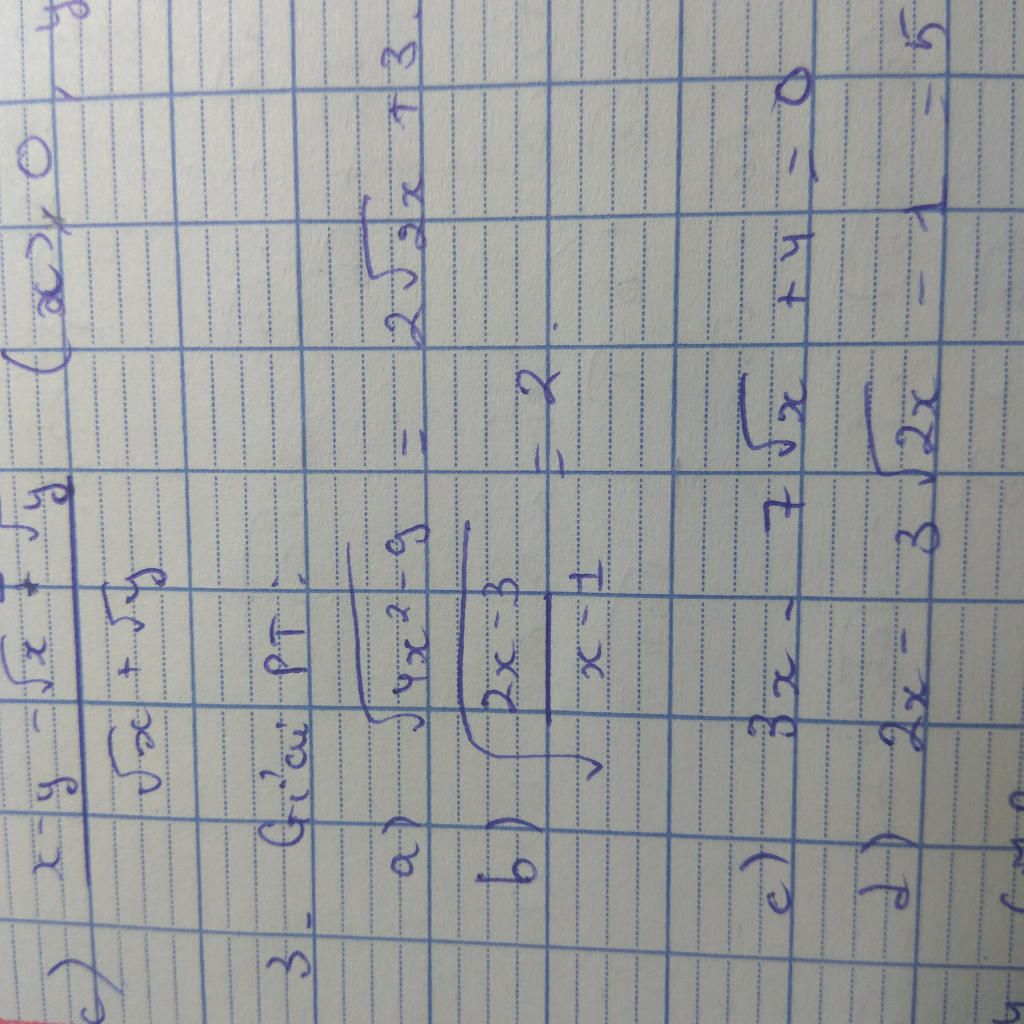 c) (x - y - √x + √y) / (√x + √y) (x ≥ 0, y
3 - Giải PT:
a) √(4x² - 9) = 2√2x + 3.
b) √((2x - 3) / (x - 1)) = 2.
c) 3x - 7√x + 4 = 0
d) 2x - 3√2x - 1 = 5